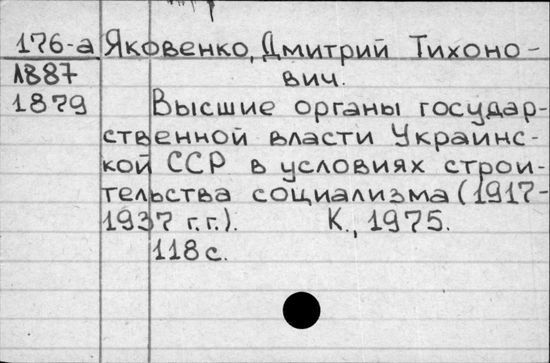 176-а Яковенко, Дмитрий Тихоно-
1887 вич.
1879 Высшие органы государ-
ственной власти Украинс-
кой ССР в условиях строи-
тельства социализма (1917-
1937 г.г.). К., 1975.
118 с.